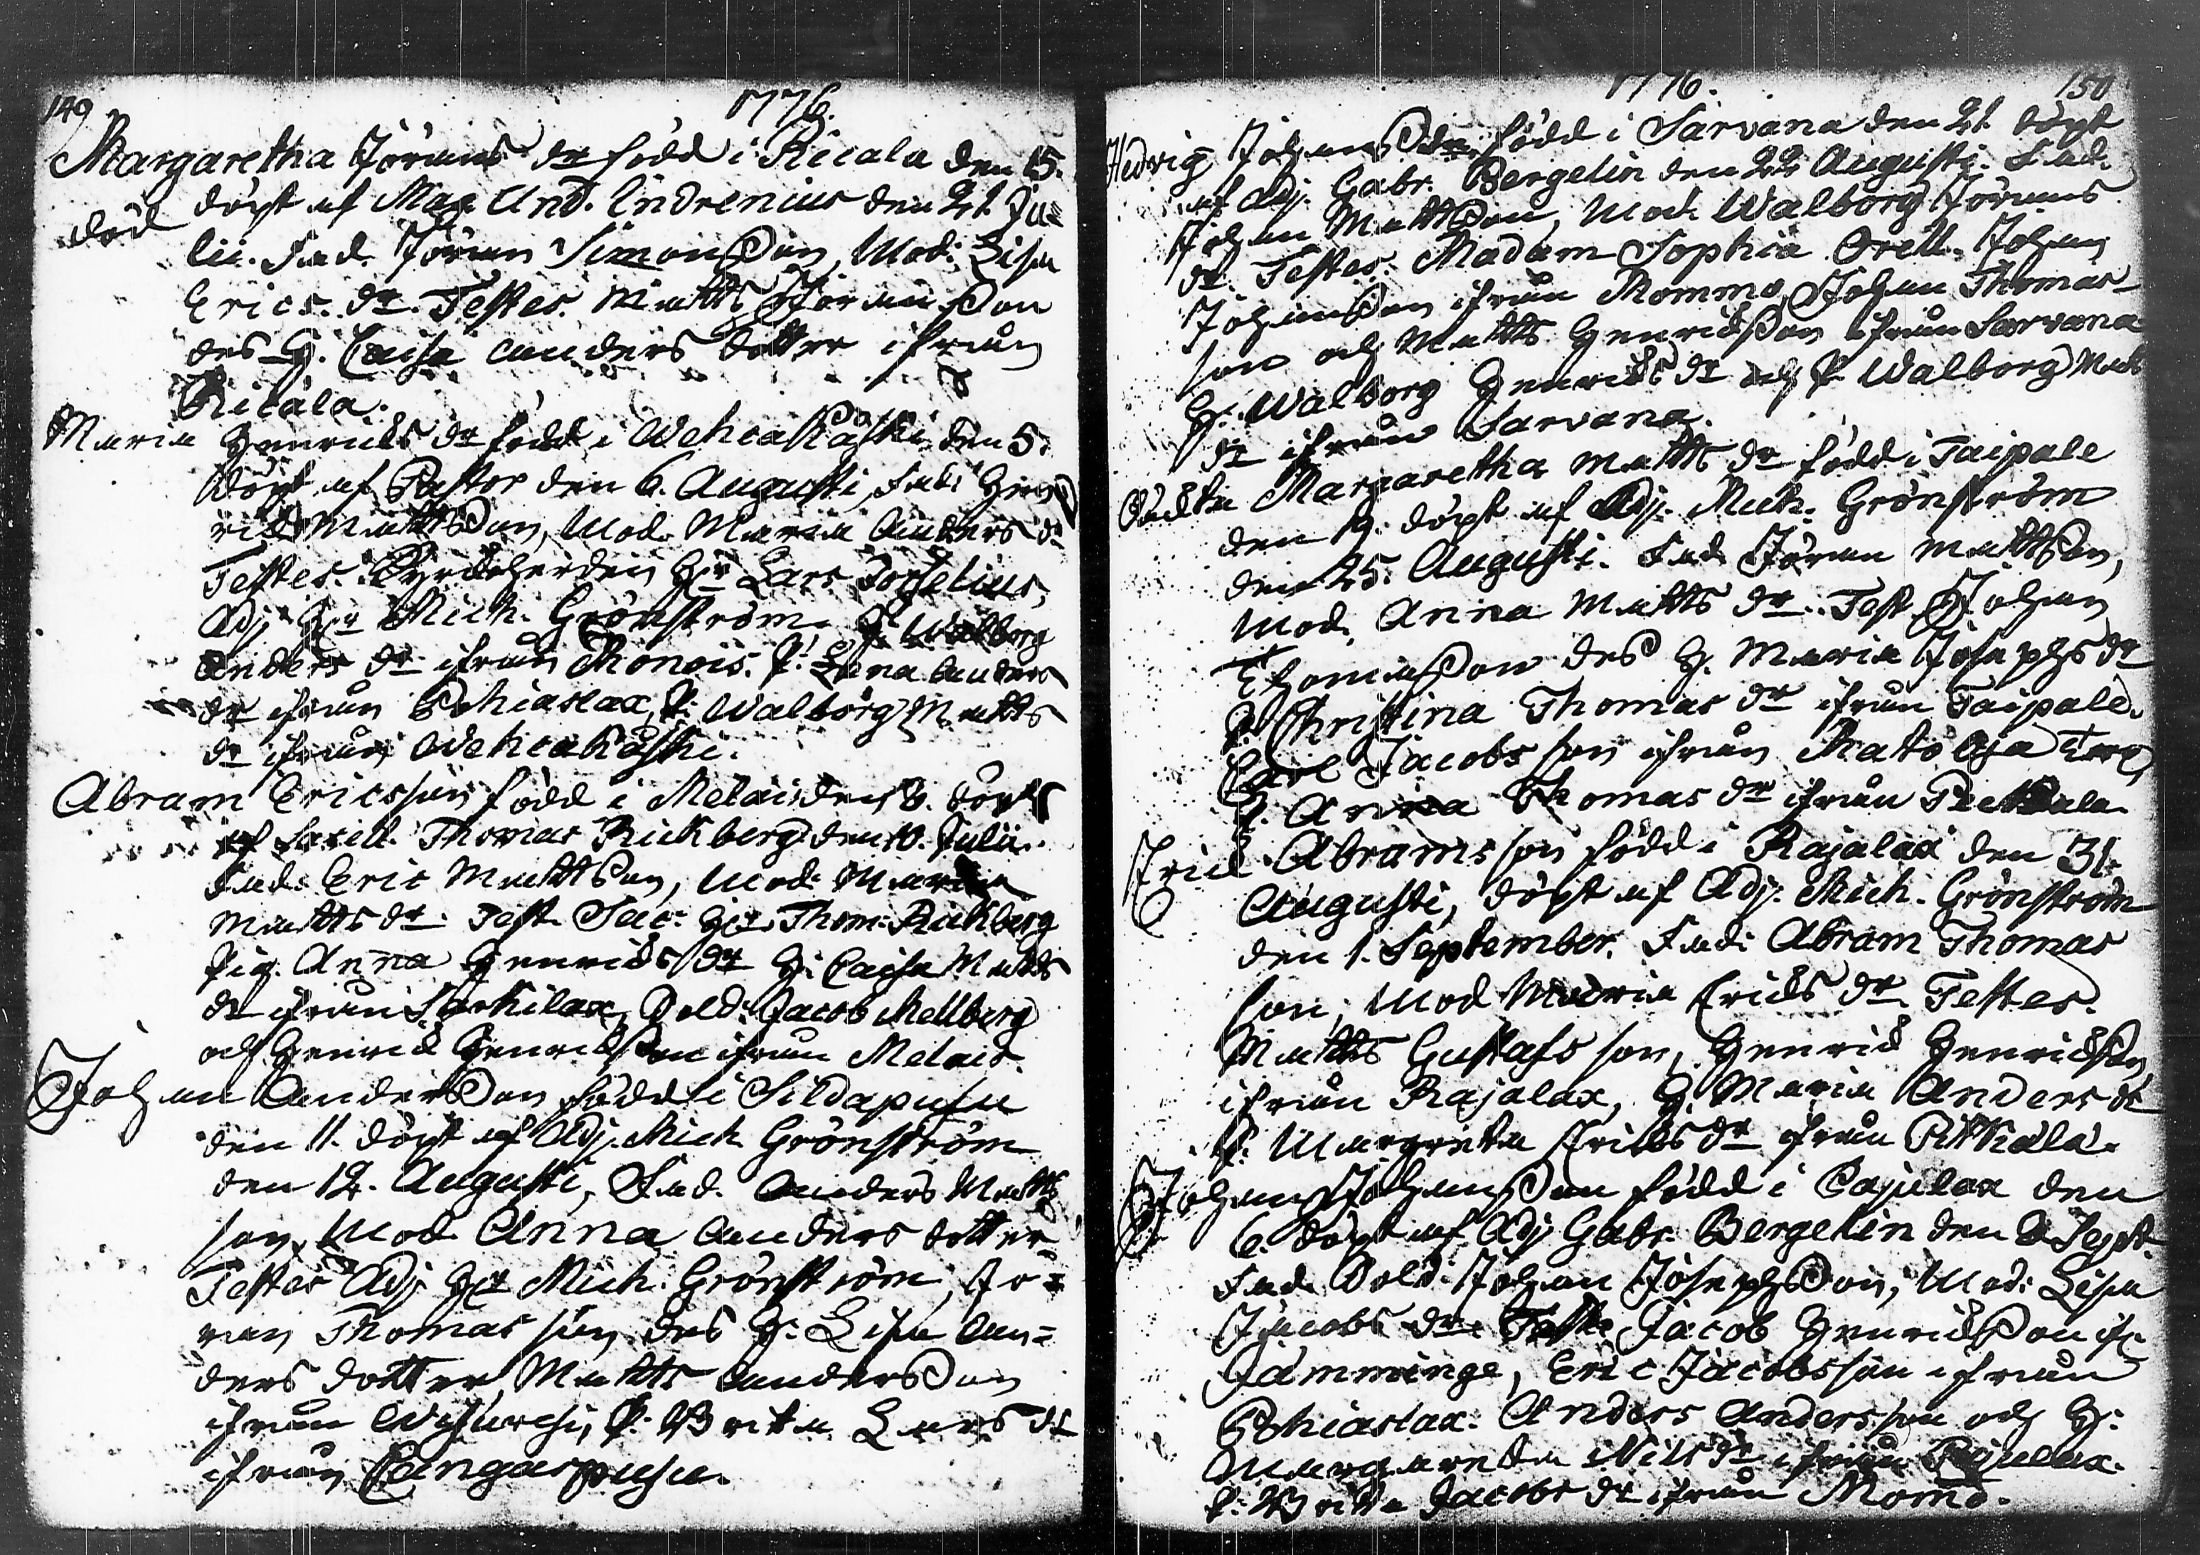 149
1776.
Margaretha Jörans dr född i Ricala den 15.
döpt af Mag. And. Indrenius den 21. Ju=
död
lii. Fad. Jöran Simonsson, Mod. Lisa
Erics dr. Testes. Matts Jöransson
des H. Caisa anders dotter ifrån
Ricala.
Maria Henrichs dr född i Wehca den 5.
döpt af Pastor den 6. Augusti, Fad. Hen
rich Mattsson, Mod. Maria Anders dr
Testes. Hr Lars
Adj. Hr Mich. Grönström. H. Walborg
Anders dr ifrån P. Lena Anders
dr ifrån P. Walborg Matts
dr ifrån
Abram Ericsson född i Metais den 8. döpt
af Sacell. Thomas Rickberg den 10. Julii.
Fad. Eric Mattsson, Mod. Maria
Matts dr. Test. Sac. Hr Thom. Rickberg
Pig. Anna Henrichs dr H. Caisa Matts
dr ifrån Sarkilax, Sold. Jacob Mellberg
och Henrich Henrichsson ifrån Metais.
Johan Andersson född i Sildapusu
den 11. döpt af Adj. Mich. Grönström
den 12. Augusti, Fad. Anders Matts
son, Mod. Anna Anders dotter
Testes Adj. Hr Mich. Grönström, Jö=
ran Thomas son, des H. Lisa An=
ders dotter, Matts Andersson
ifrån P. Brita Lars dr
ifrån Cangaspusu.
1776.
150
Hedvig Johans dr född i Sarvana den 21. döpt
af Adj. Gabr. Bergelin den 22 Augusti. Fad.
Johan Mattsson, Mod. Walborg Jörans
dr. Testes. Madam Sophia Orell. Johan
Johansson ifrån Mommo, Johan Thomas
son och Matts Henrichsson ifrån Sarvana
H. Walborg Henrichs dr och P. Walborg Matts
dr ifrån Sarvana.
Margaretha Matts dr född i Taipale
den 19. döpt af Adj. Mich. Grönström
den 25. Augusti. Fad. Jöran Mattsson,
Mod. Anna Matts dr. Test. Johan
Thomasson des H. Maria Josephs dr
P. Christina Thomas dr ifrån Taipale.
Carl Jacobs son ifrån
P. Anna Thomas dr ifrån
Erich Abrams son född i Rajalax den 31.
Augusti, döpt af Adj. Mich. Grönström
den 1. September. Fad. Abram Thomas
son, Mod. Maria Erichs dr. Testes.
Matts Gustafs son, Henrich Henrichsson
ifrån Rajalax, H. Maria Anders dr
P. Margreta Erichs dr ifrån Pitkälä.
Johan Johansson född i Cajulax den
6. döpt af Adj Gabr. Bergelin den 8 Sept.
Fad. Sold. Johan Josephsson, Mod. Lisa
Jacobs dr. Test. Jacob Henrichsson ifr.
Jämminge, Eric Jacobsson ifrån
Anders Andersson och H.
Margareta Nils dr ifrån Cajulax.
P. Brita Jacobs dr ifrån Momo.